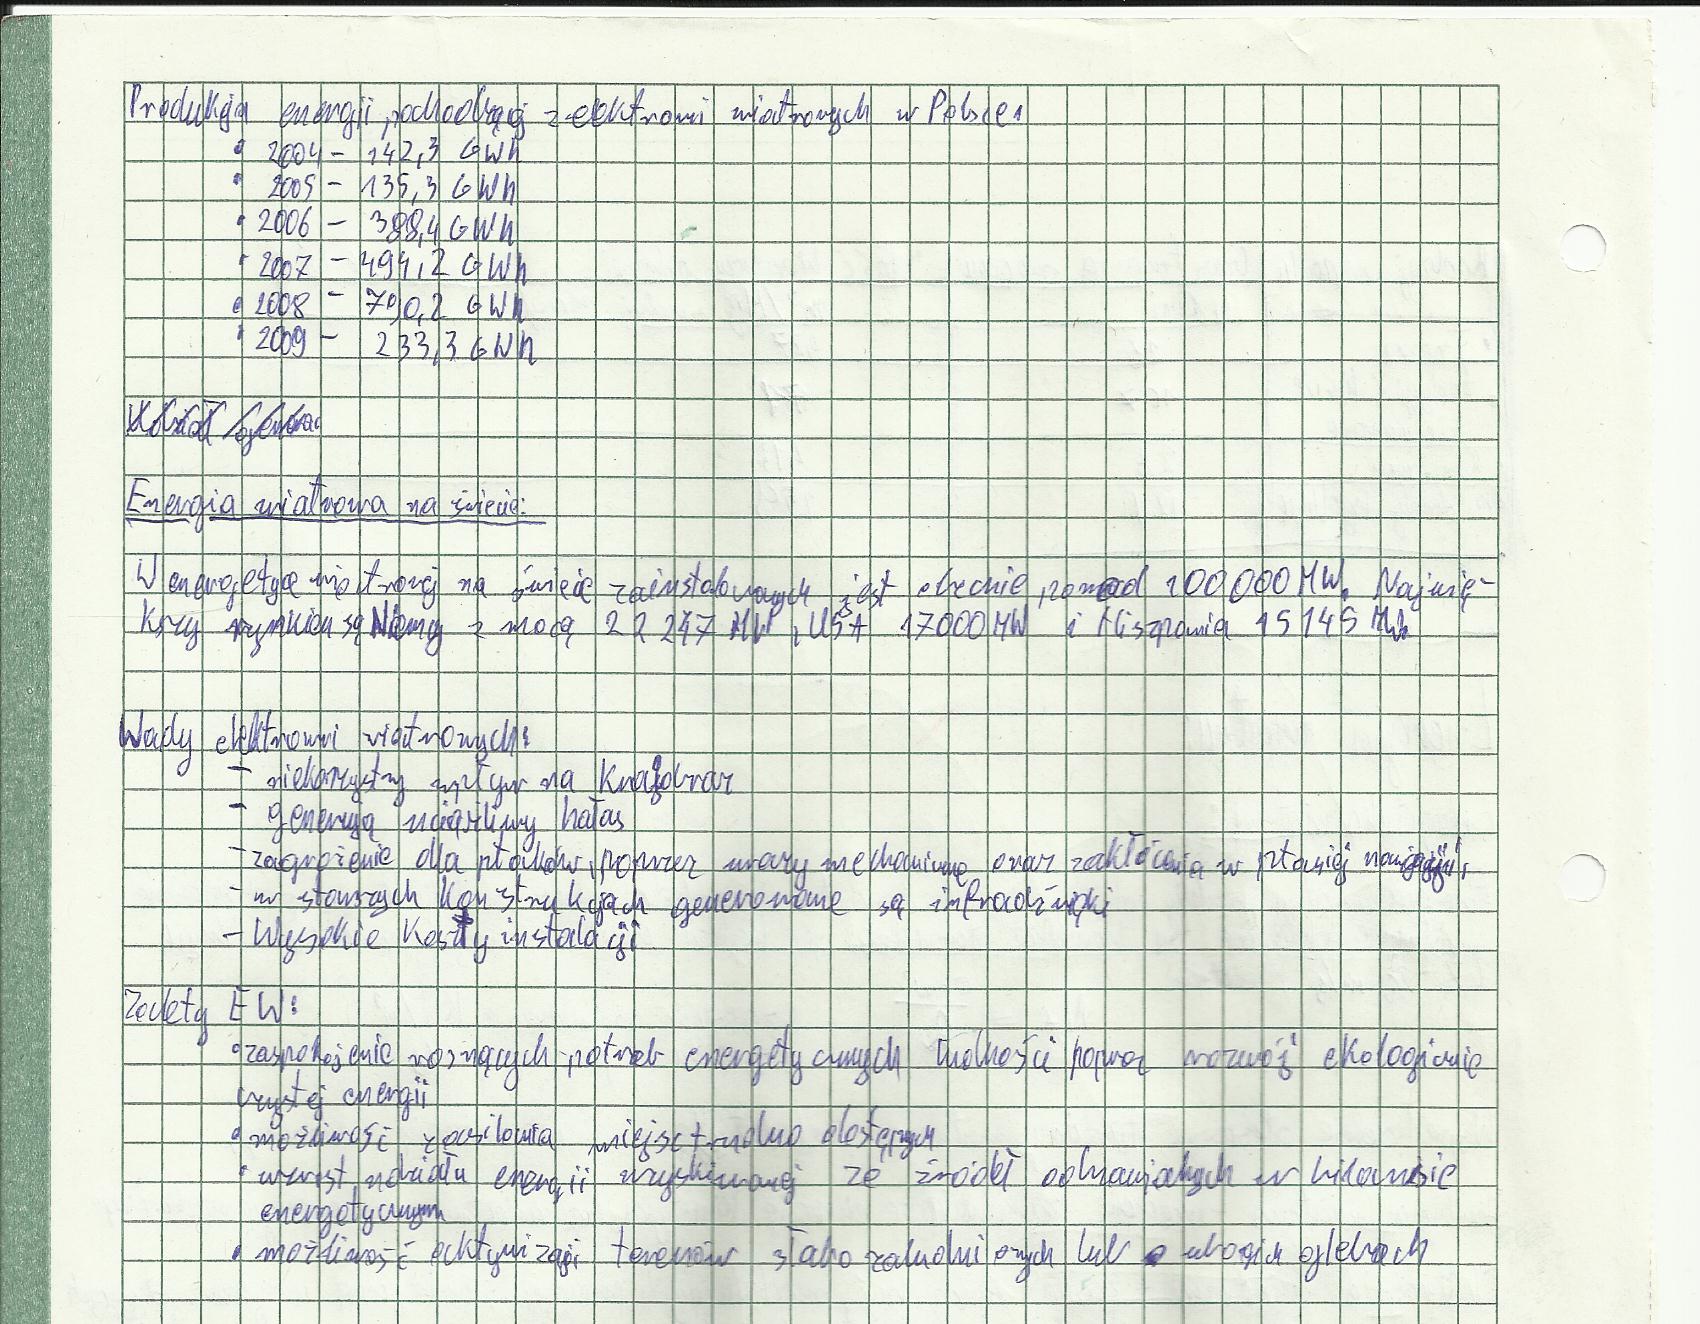 Produkcja energii pochodzącej z elektrowni wiatrowych w Polsce:
• 2004 – 142,3 GWh
• 2005 – 135,3 GWh
• 2006 – 388,4 GWh
• 2007 – 494,2 GWh
• 2008 – 790,2 GWh
• 2009 – 233,3 GWh
Energia wiatrowa na świecie:
W energetyce wiatrowej na świecie zainstalowanych jest obecnie ponad 100 000 MW. Najwię-
kszy rynkiem są Niemcy z mocą 22 247 MW, USA 17000 MW i Hiszpania 15 145 MW.
Wady elektrowni wiatrowych:
– niekorzystny wpływ na krajobraz
– generują uciążliwy hałas
– zagrożenie dla ptaków, poprzez urazy mechaniczne oraz zakłócenia w ptasiej nawigacji,
– w starszych konstrukcjach generowane są infradźwięki
– Wysokie koszty instalacji
Zalety EW:
• zaspokojenie rosnących potrzeb energetycznych ludności poprzez rozwój ekologicznie
czystej energii
• możliwość zasilania miejsc trudno dostępnych
• wzrost udziału energii uzyskiwanej ze źródeł odnawialnych w bilansie
energetycznym
• możliwość aktywizacji terenów słabo zaludnionych lub o ubogich glebach